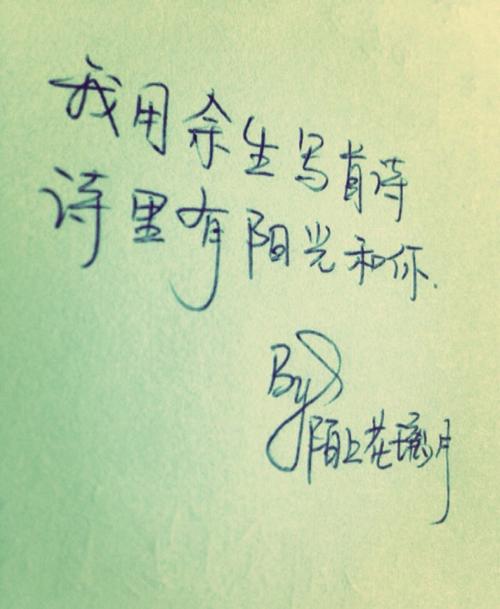 我用余生写首诗
诗里有阳光和你.
By
陌上花璃月